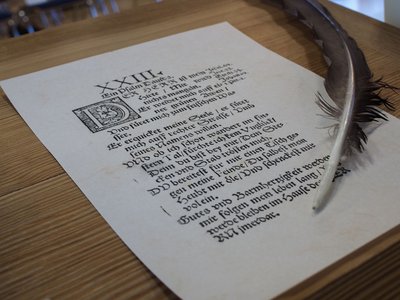 XXIII.
Ein Psalm
ER HERR ist mein
Hirte / Mir wird
nichts mangeln.
Und füret mich zum frischen Was
ser.
Er erquicket meine Seele / er füret
mich auff rechter Strasse / Umb
seines Namens willen.
UND ob ich schon wandert im fin
stern Tal / fürchte ich kein Unglück /
Denn du bist bey mir / Dein Ste
cken und Stab trösten mich.
DU bereitest fur mir einen Tisch ge
gen meine Feinde / Du salbest mein
Heubt mit öle / Und schenckest mir
vol ein.
Gutes und Barmhertzigkeit werden
mir folgen mein leben lang / Und
werde bleiben im Hause des HER
RN jmerdar.